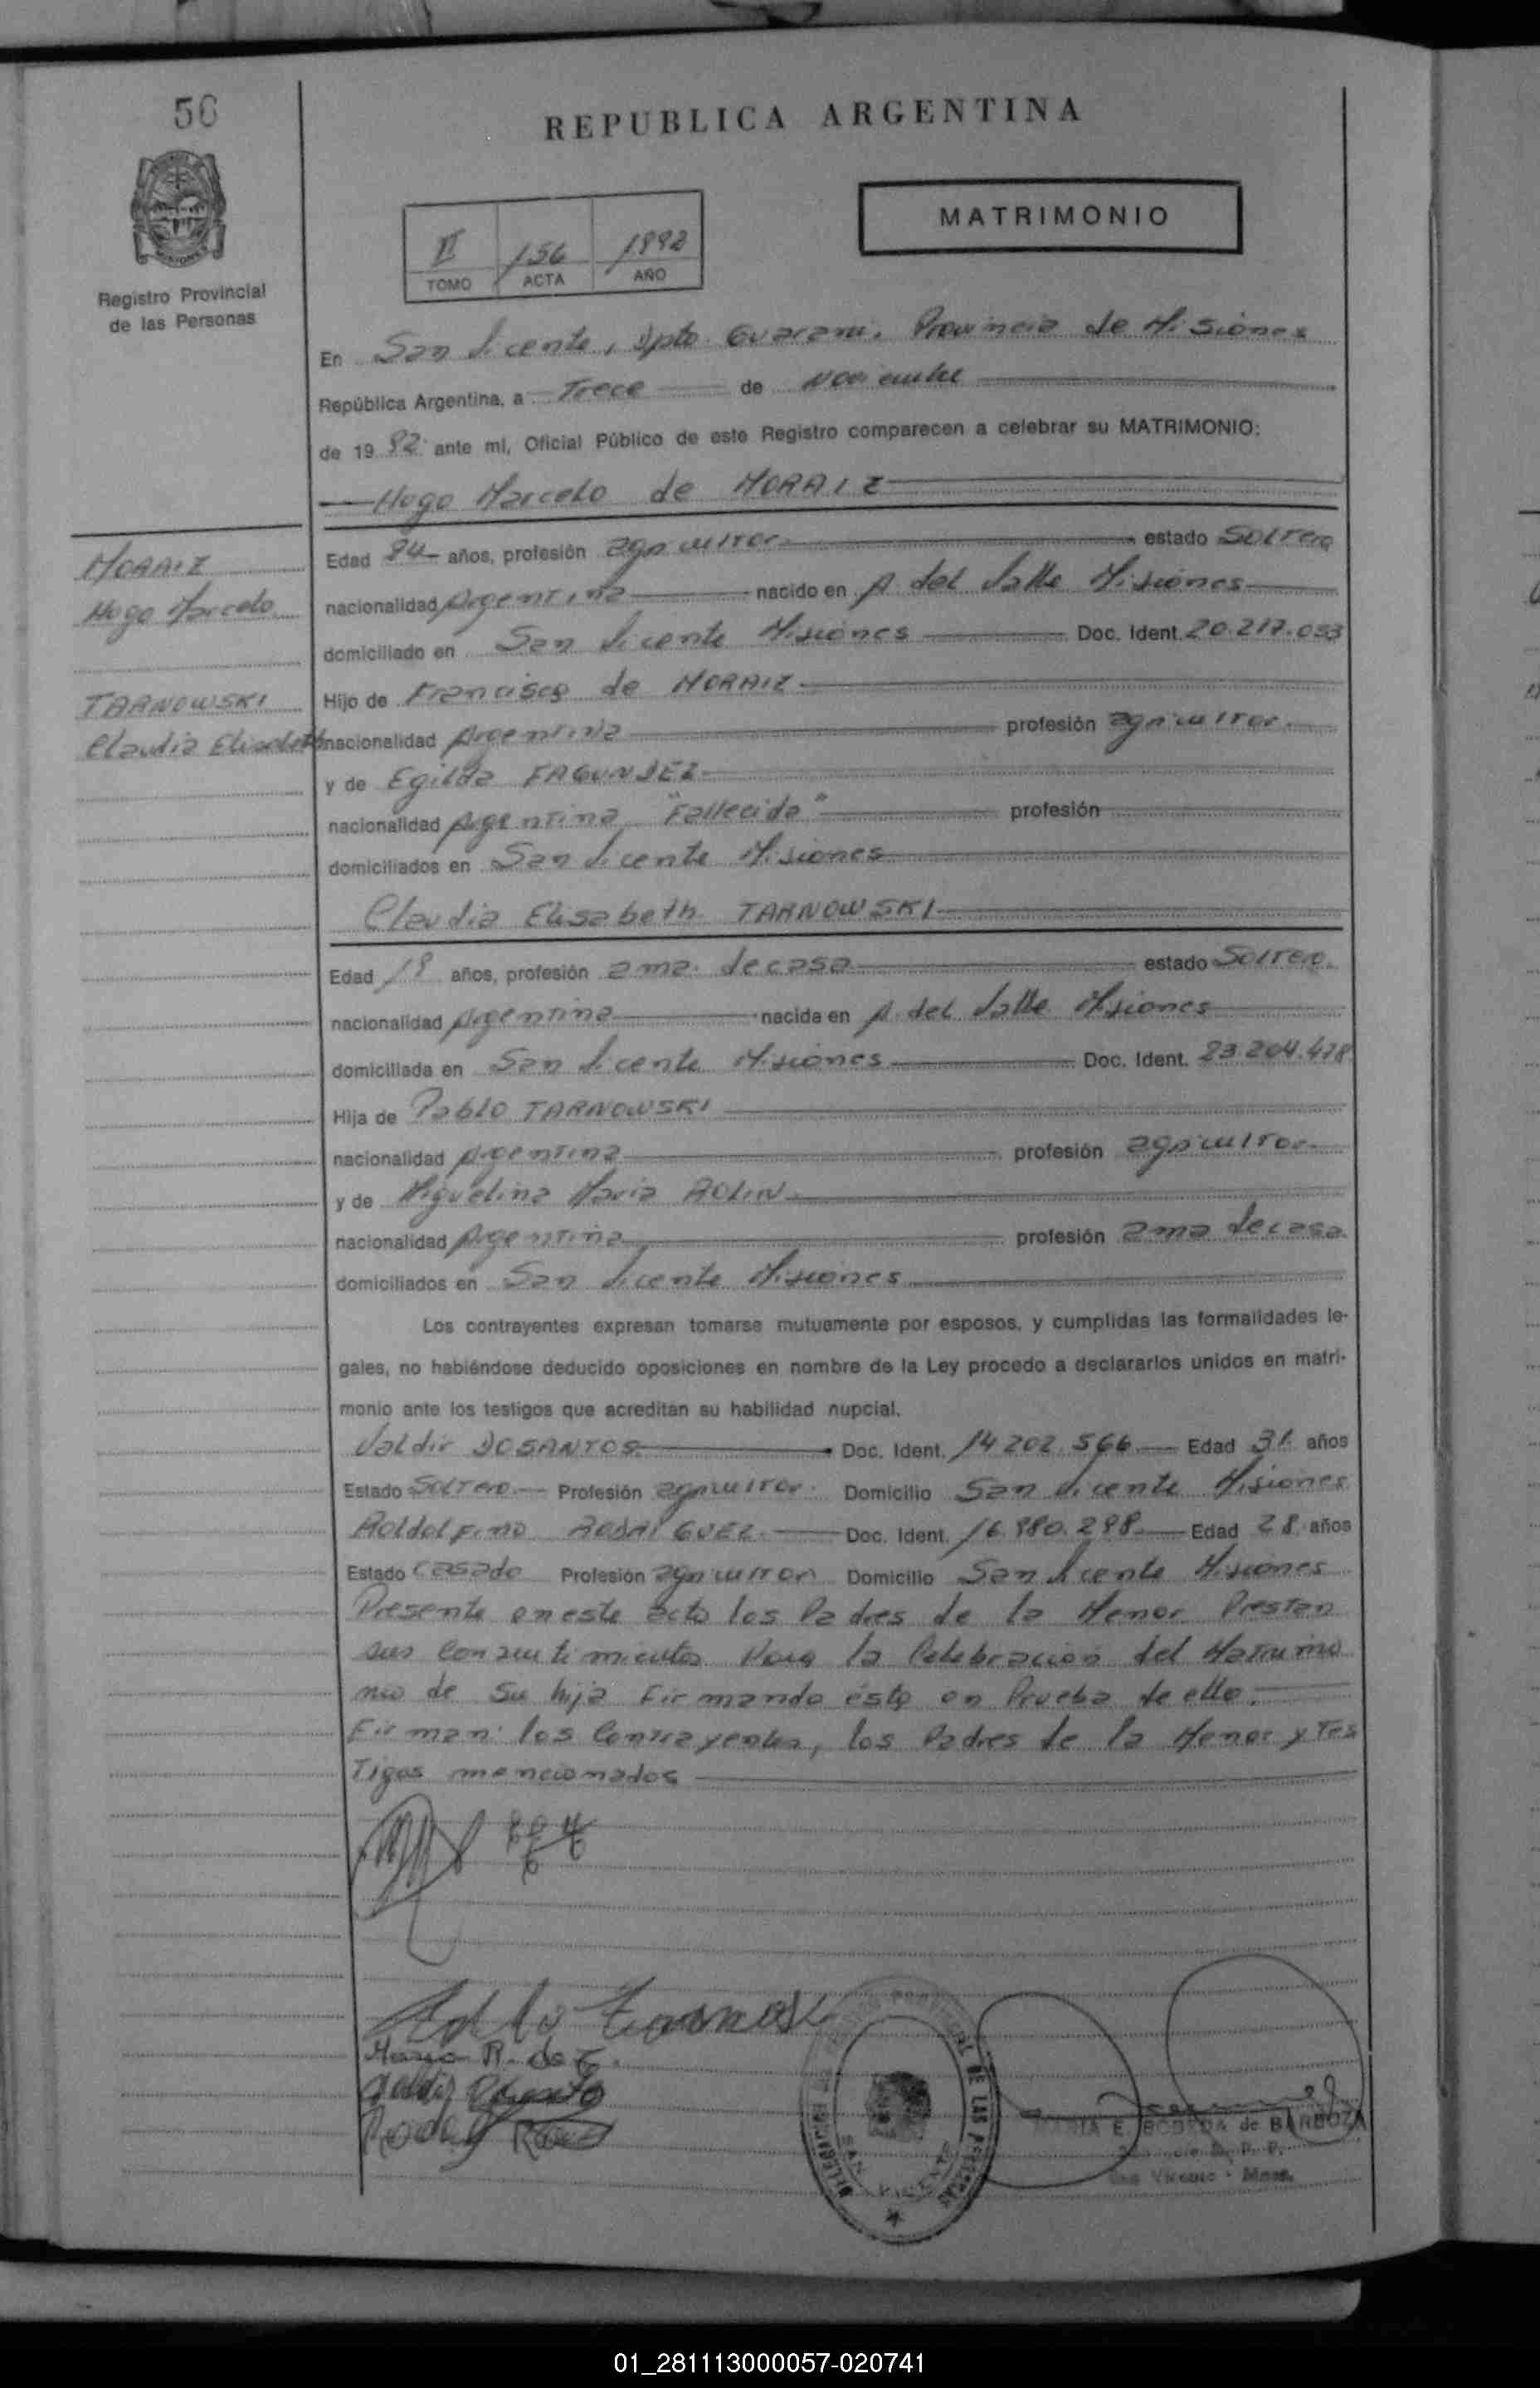 56
REPUBLICA ARGENTINA
MATRIMONIO
II 156 1992
TOMO ACTA AÑO
Registro Provincial
de las Personas
En San Vicente, Dpto. Guarani. Provincia de Misiones
República Argentina, a Trece de Noviembre
de 19 92 ante mi, Oficial Público de este Registro comparecen a celebrar su MATRIMONIO:
Hugo Marcelo de MORAIZ
MORAIZ
Hugo Marcelo
TARNOWSKI
Claudia Elisabeth
Edad 24 años, profesión agricultor estado Soltero
nacionalidad Argentina nacido en A. del Valle Misiones
domiciliado en San Vicente Misiones Doc. Ident. 20.217.053
Hijo de Francisco de MORAIZ
nacionalidad Argentina profesión agricultor
y de Egilda FAGUNDEZ
nacionalidad Argentina "Fallecida" profesión
domiciliados en San Vicente Misiones
Claudia Elisabeth TARNOWSKI
Edad 19 años, profesión ama de casa estado Soltera
nacionalidad Argentina nacida en A. del Valle Misiones
domiciliada en San Vicente Misiones Doc. Ident. 23.204.478
Hija de Pablo TARNOWSKI
nacionalidad Argentina profesión agricultor
y de Miguelina Maria ROLIN
nacionalidad Argentina profesión ama de casa
domiciliados en San Vicente Misiones
Los contrayentes expresan tomarse mutuamente por esposos, y cumplidas las formalidades le-
gales, no habiéndose deducido oposiciones en nombre de la Ley procedo a declararlos unidos en matri-
monio ante los testigos que acreditan su habilidad nupcial.
Valdir DOSANTOS Doc. Ident. 14 202.566 Edad 31 años
Estado Soltero Profesión agricultor Domicilio San Vicente Misiones
Roldolfino RODRIGUEZ Doc. Ident. 16.980.298 Edad 28 años
Estado Casado Profesión agricultor Domicilio San Vicente Misiones
Presente en este acto los Padres de la Menor Prestan
sus consentimientos Para la Celebracion del Matrimo
nio de Su hija Firmando ésta en Prueba de ello.
Firman: los Contrayentes, los Padres de la Menor y Tes
Tigos mencionados
Maria R. de T.
DE LAS PERSONAS
SAN VICENTE
MARIA E. de BARBOZA
San Vicente - Mnes.
01_281113000057-020741